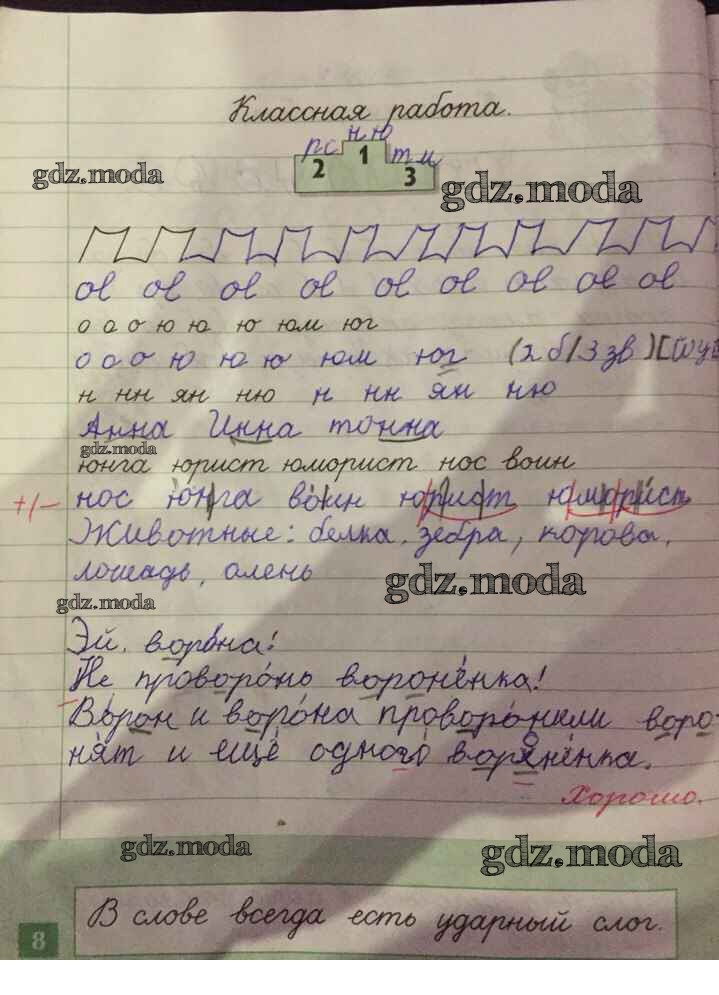 Классная работа.
н ю
рс 1 тм
2 3
gdz.moda gdz.moda
ol ol ol ol ol ol ol ol ol
о о о ю ю ю юм юг
о о о ю ю ю юм юг (2 б/3 зв)[йу
н нн ян ню н нн ян ню
Анна Инна тонна
gdz.moda
юнга юрист юморист нос воин
+/- нос юнга воин юрист юморист
Животные: белка, зебра, корова,
лошадь, олень
gdz.moda gdz.moda
Эй, ворона!
Не проворонь воронёнка!
Ворон и ворона проворонили воро
нят и ещё одного воронёнка.
Хорошо.
gdz.moda gdz.moda
В слове всегда есть ударный слог.
8